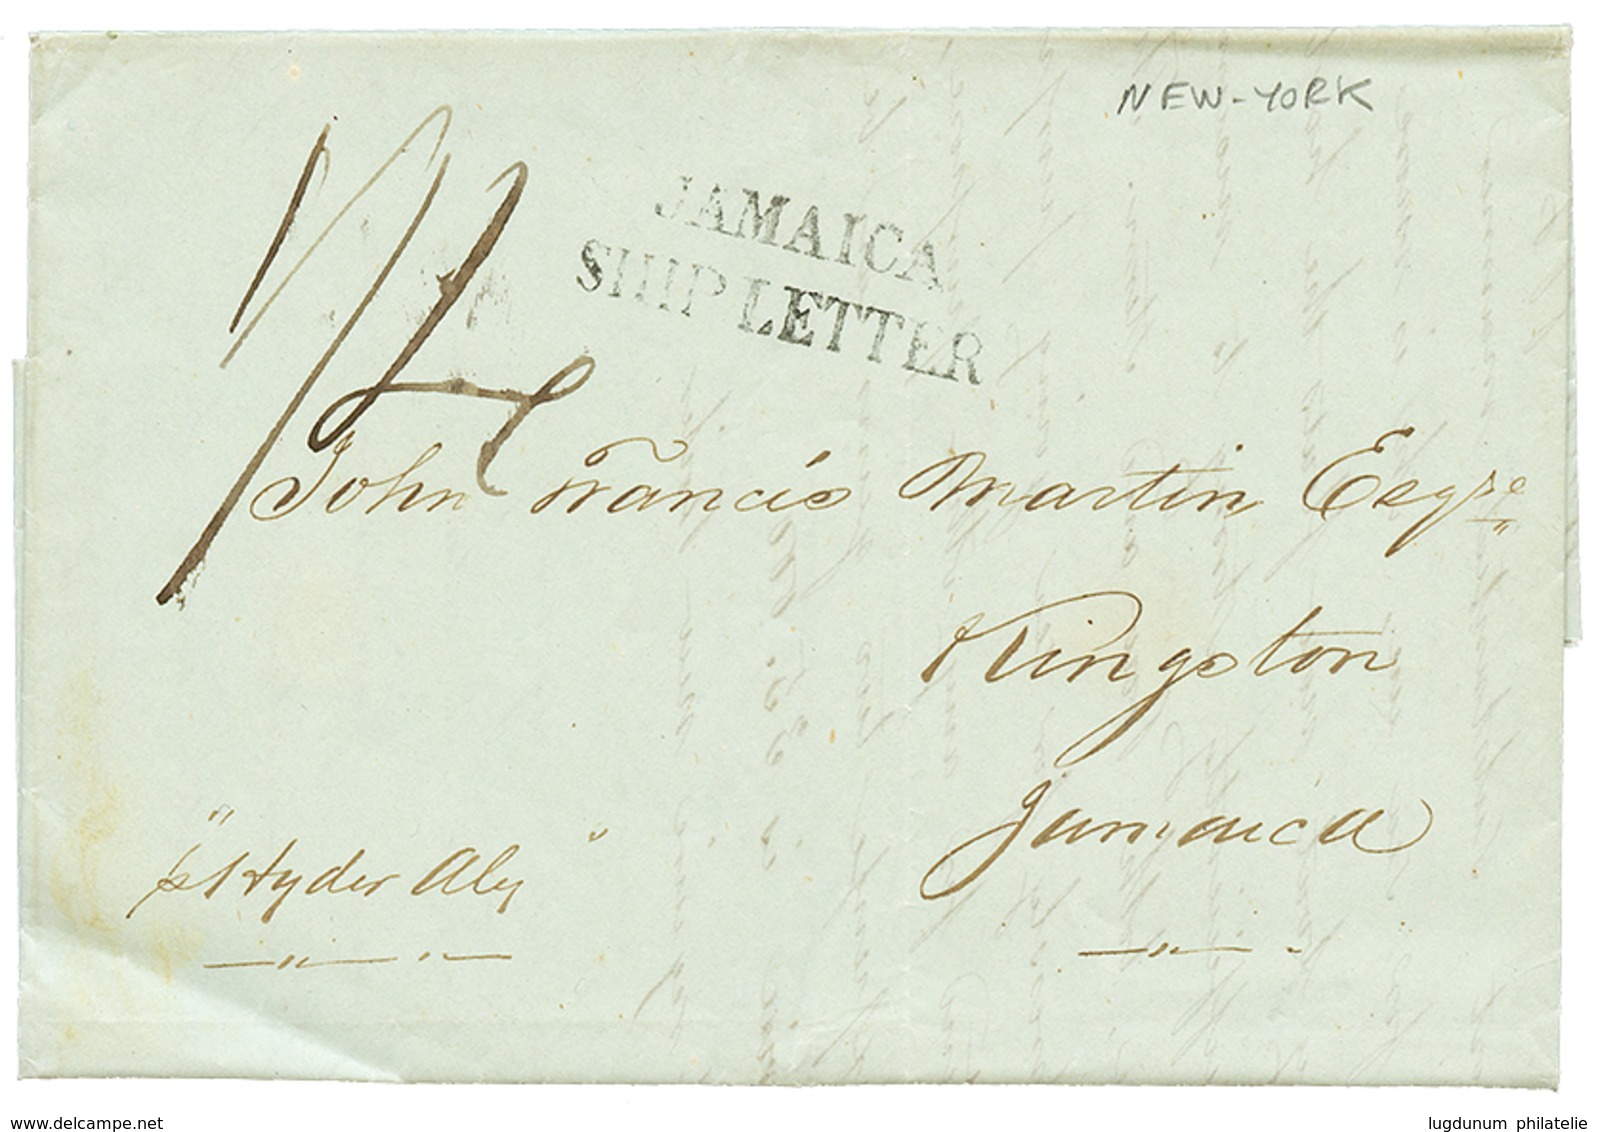 NEW-YORK
JAMAICA
SHIP LETTER
1/4
John Francis Martin Esqre
Kingston
Jamaica
"
p Hyder Aly "
www.delcampe.net
lugdunum philatelie